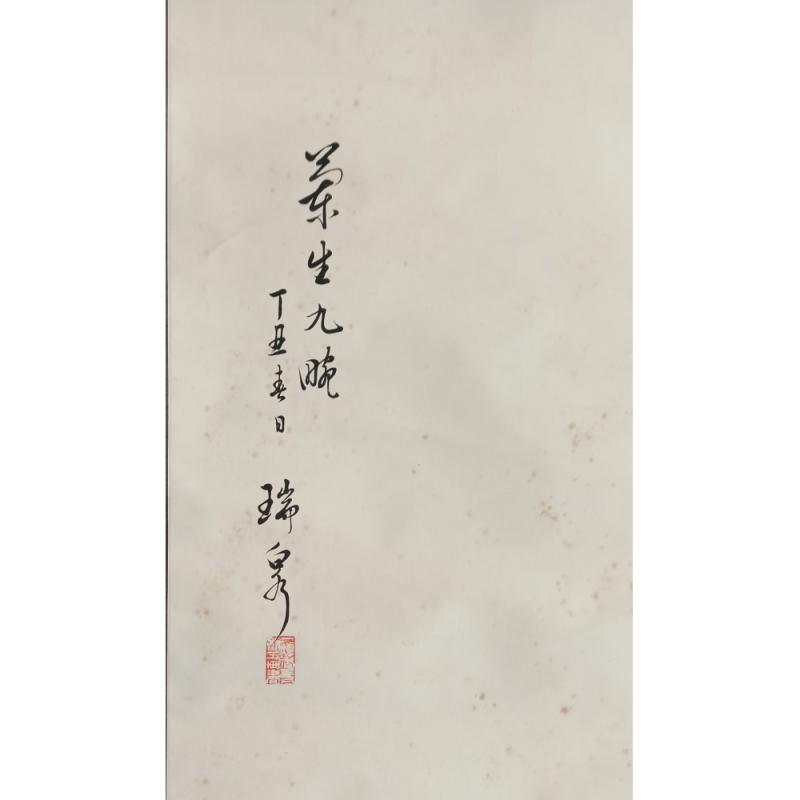 蘭生九畹
丁丑春日
瑞泉